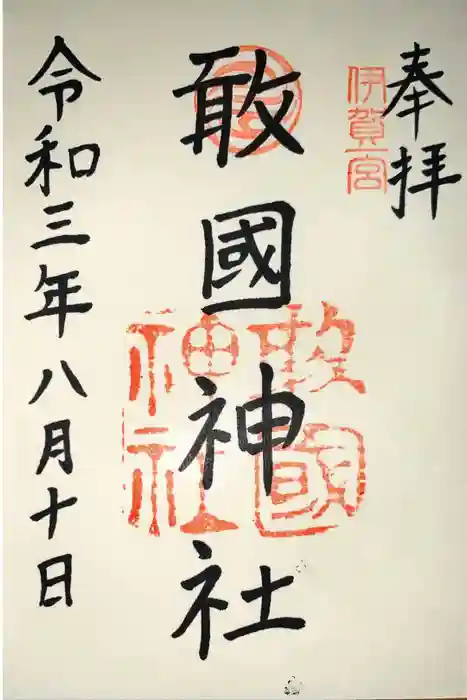 奉拝
伊賀一宮
敢國神社
敢國
神社
令和三年八月十日